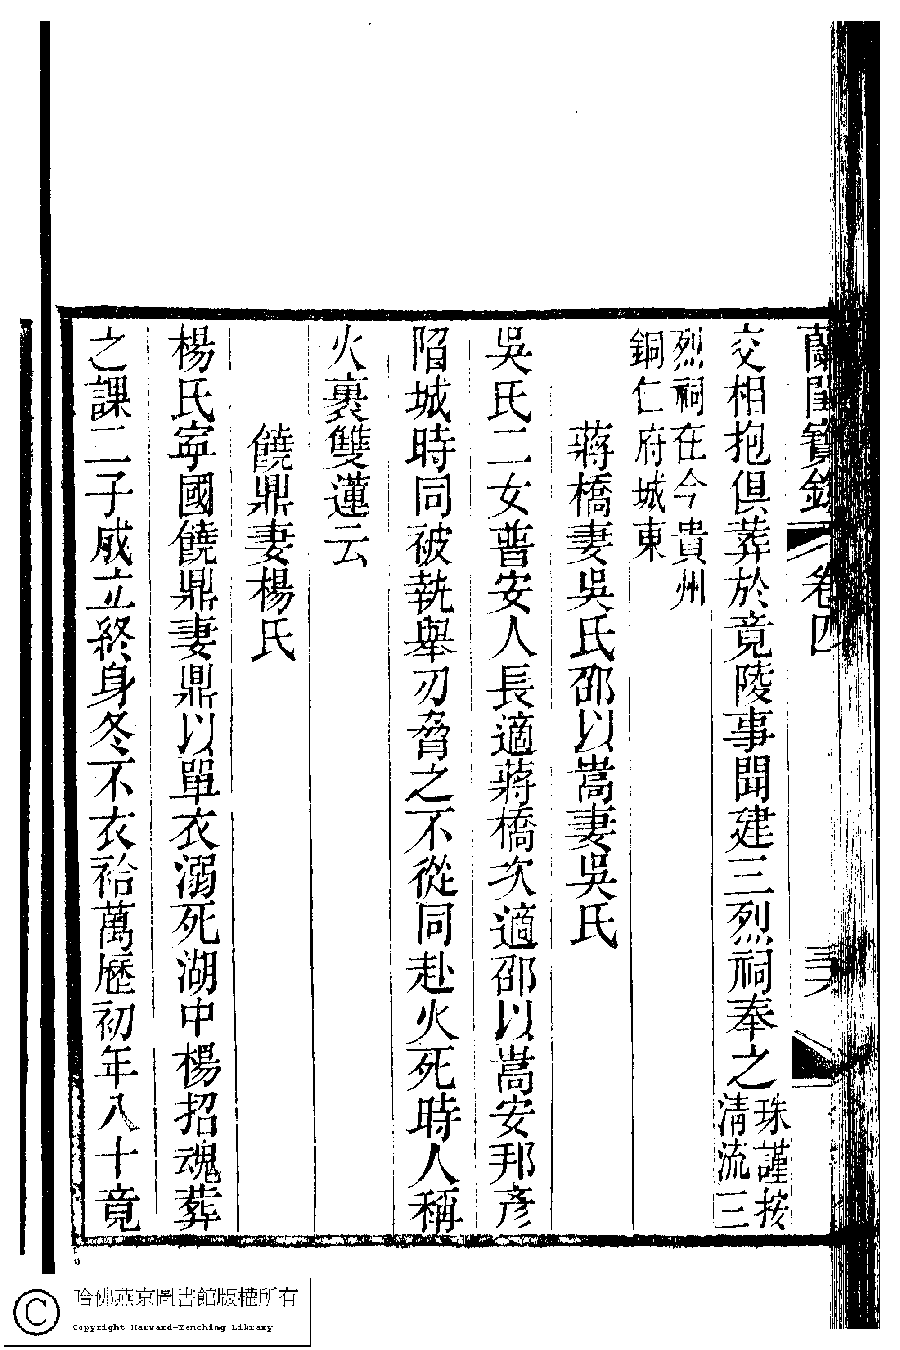 蘭閨寶錄 卷四
交相抱俱葬於竟陵事聞建三烈祠奉之珠謹按清流三
烈祠在今貴州
銅仁府城東
蔣橋妻吳氏邵以嵩妻吳氏
吳氏二女普安人長適蔣橋次適邵以嵩安邦彥
陷城時同被執舉刃脅之不從同赴火死時人稱
火裹雙蓮云
饒鼎妻楊氏
楊氏寧國饒鼎妻鼎以單衣溺死湖中楊招魂葬
之課二子成立終身冬不衣袷萬歷初年八十竟
哈佛燕京圖書館版權所有
Copyright Harvard-Yenching Library